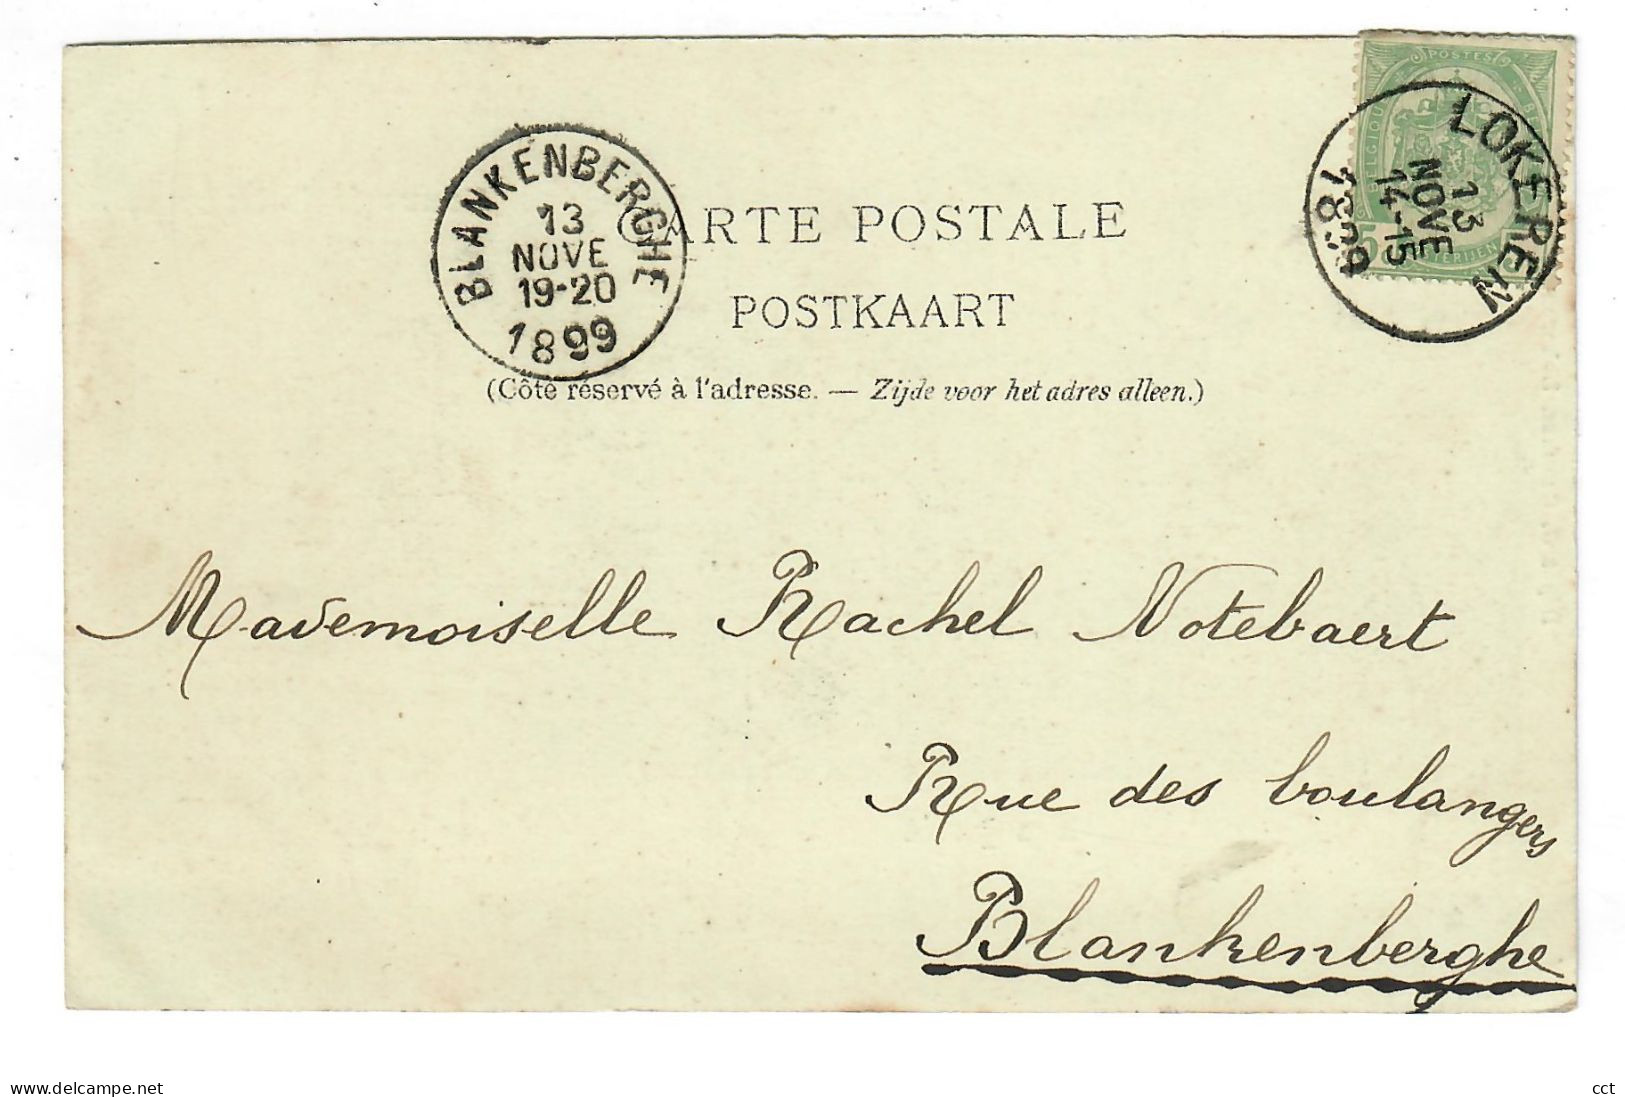 POSTES
BELGIQUE
5
LOKEREN
13
NOVE
14-15
1899
BLANKENBERGHE
13
NOVE
19-20
1899
CARTE POSTALE
POSTKAART
(Côté réservé à l'adresse. — Zijde voor het adres alleen.)
Mademoiselle Rachel Notebaert
Rue des boulangers
Blankenberghe
www.delcampe.net
cct